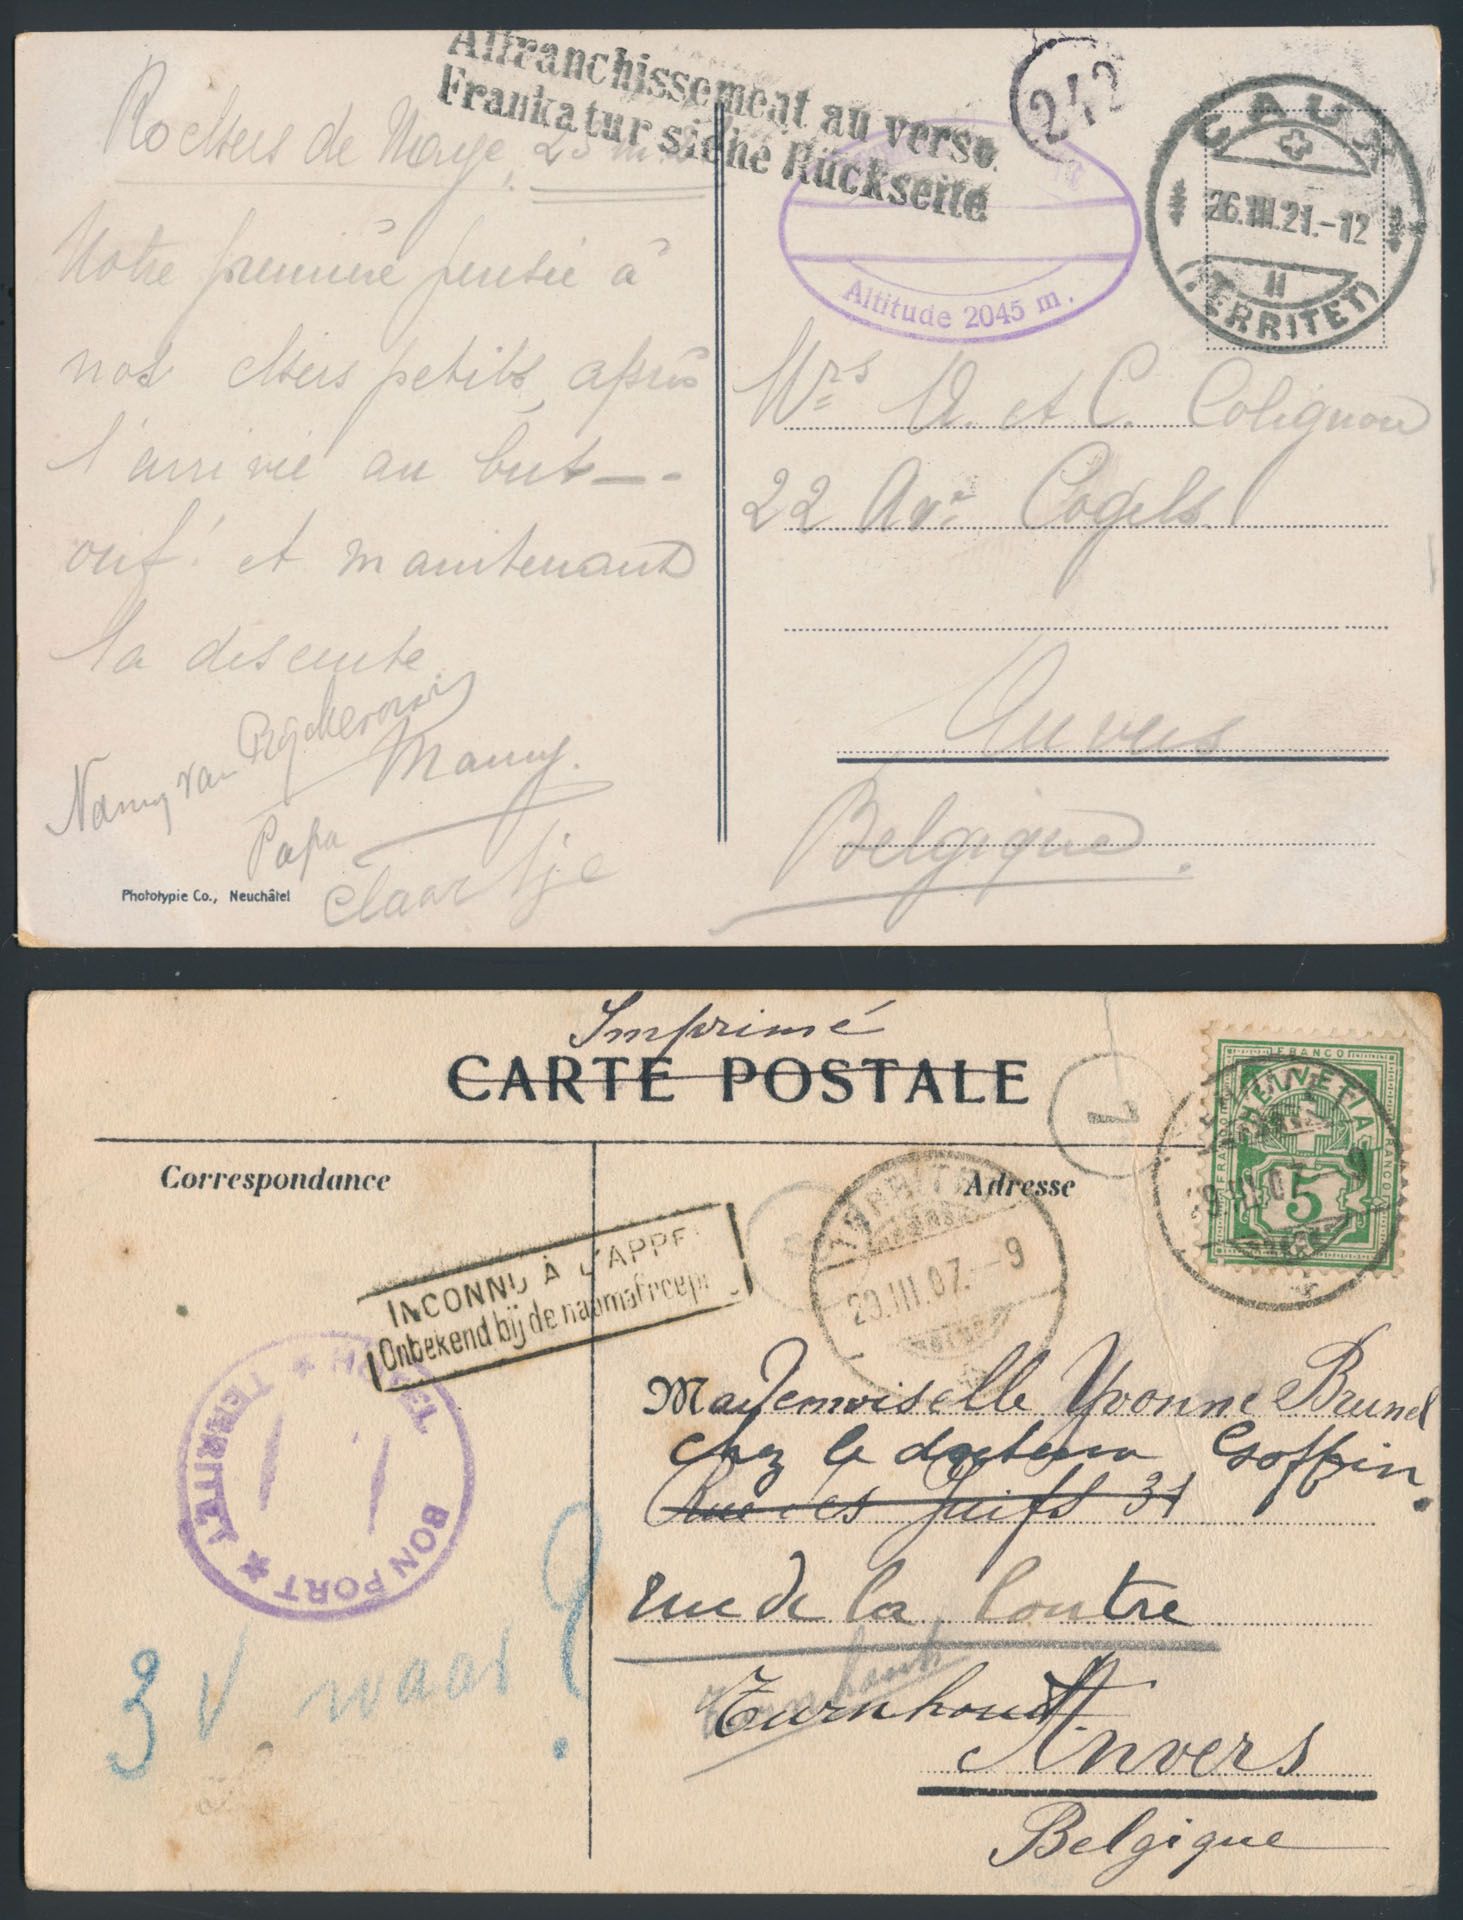 Affranchissement au verso.
Frankatur siehe Rückseite
242
CAUX
26.III.21.-12
II
(TERRITET)
Altitude 2045 m.
Rochers de Naye, 25
Notre première pensée à
nos chers petits, après
l'arrivée au but—-
ouf! et maintenant
la descente
Nany van Ryckevorsel
Mamy.
Papa
Claartje
Phototypie Co., Neuchâtel
Mrs V. et C. Colignon
22 Ave Cogels
Anvers
Belgique.
Imprimé
CARTE POSTALE
Correspondance
Adresse
1
FRANCO
HELVETIA
FRANCO
FRANCO
5
TERRITET
29.III.07.-9
INCONNU À L'APPEL
Onbekend bij de naamafroep
BON PORT ★ TERRITET ★
3 V waar ?
Mademoiselle Yvonne Brunel
chez le docteur Goffin.
Rue des Juifs 31
rue de la loutre
Turnhout
Turnhout.
Anvers
Belgique